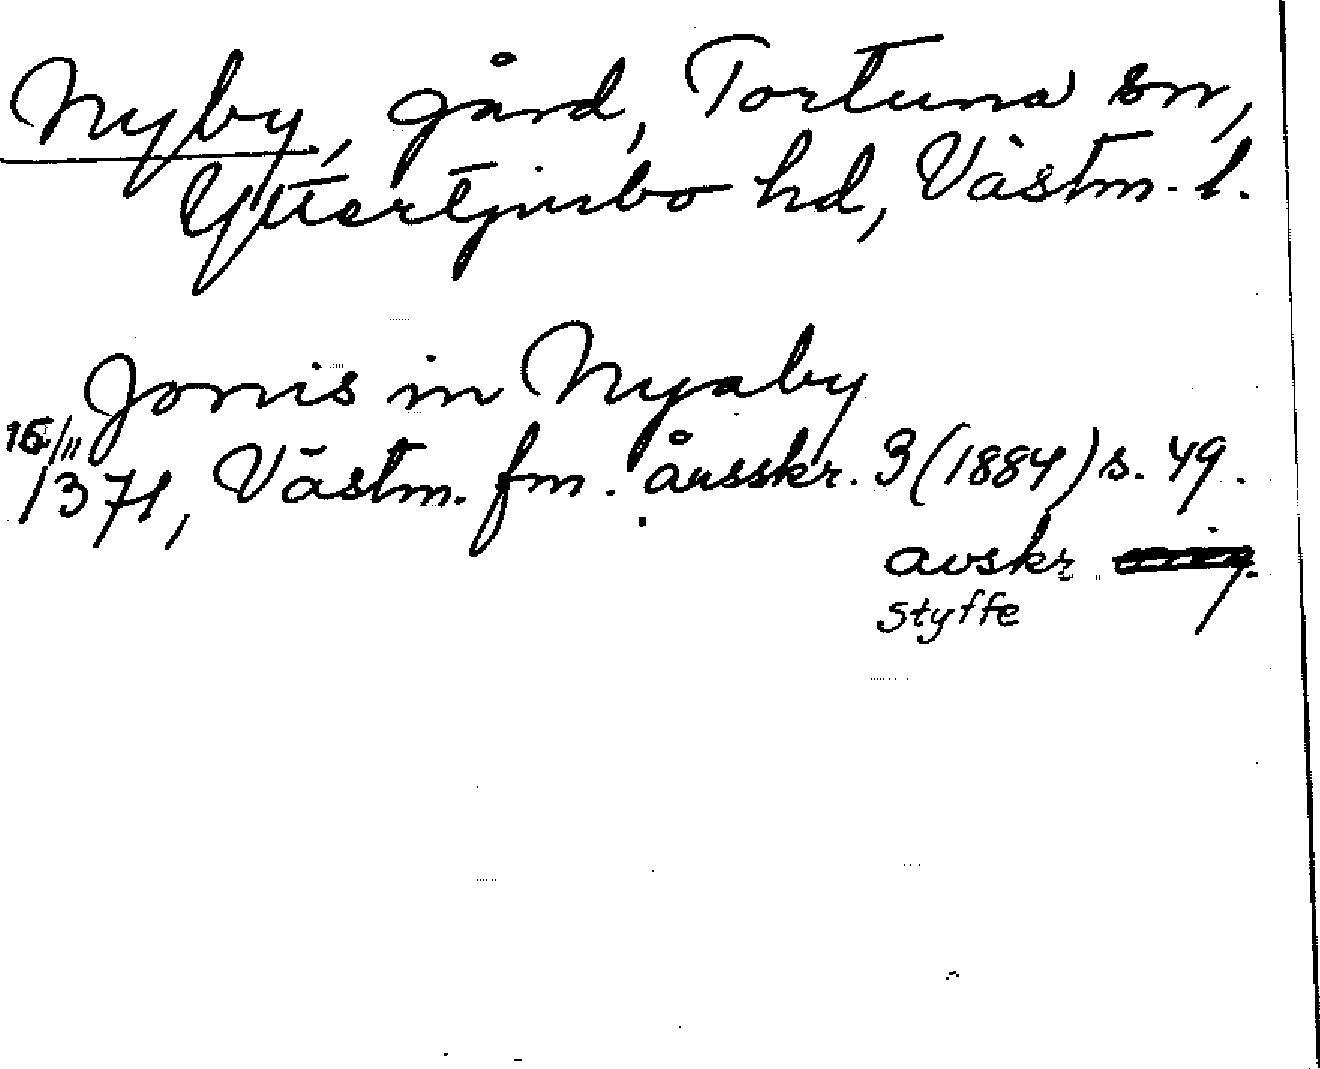 Nyby, gård, Tortuna sn,
Yttertjurbo hd, Västm. l.
Jonis in Nyaby
16/11 1371, Västm. fm. årsskr. 3 (1884) s. 49.
avskr.
Styffe